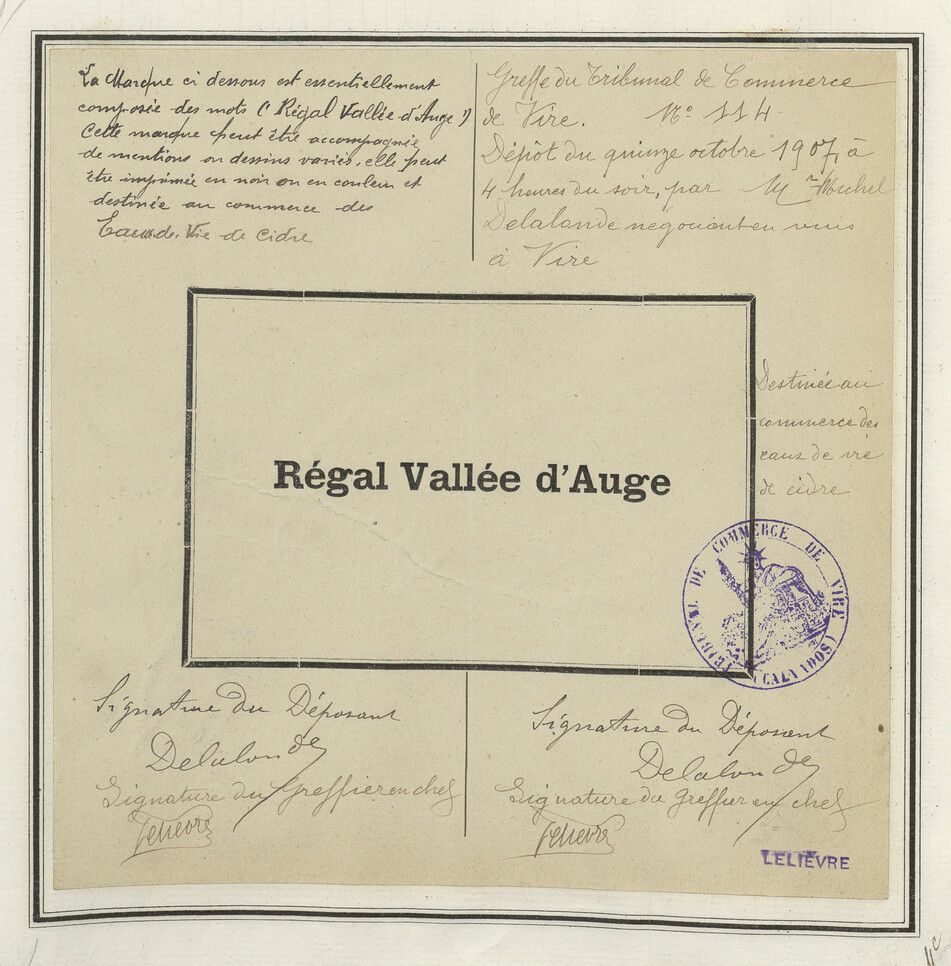 La Marque ci dessous est essentiellement
composée des mots (Régal Vallée d'Auge)
Cette marque peut être accompagnée
de mentions ou dessins variés, elle peut
être imprimée en noir ou en couleur et
destinée au commerce des
Eaux-de-Vie de Cidre
Greffe du Tribunal de Commerce
de Vire. N° 114
Dépôt du quinze octobre 1907, à
4 heures du soir, par Mr Michel
Delalande négociant en vins
à Vire
Régal Vallée d'Auge
Destinée au
commerce des
eaux de vie
de cidre
TRIBUNAL DE COMMERCE DE VIRE (CALVADOS)
Signature du Déposant
Delalande
Signature du Greffier en chef
Lelievre
Signature du Déposant
Delalande
Signature du Greffier en chef
Lelievre
LELIÈVRE